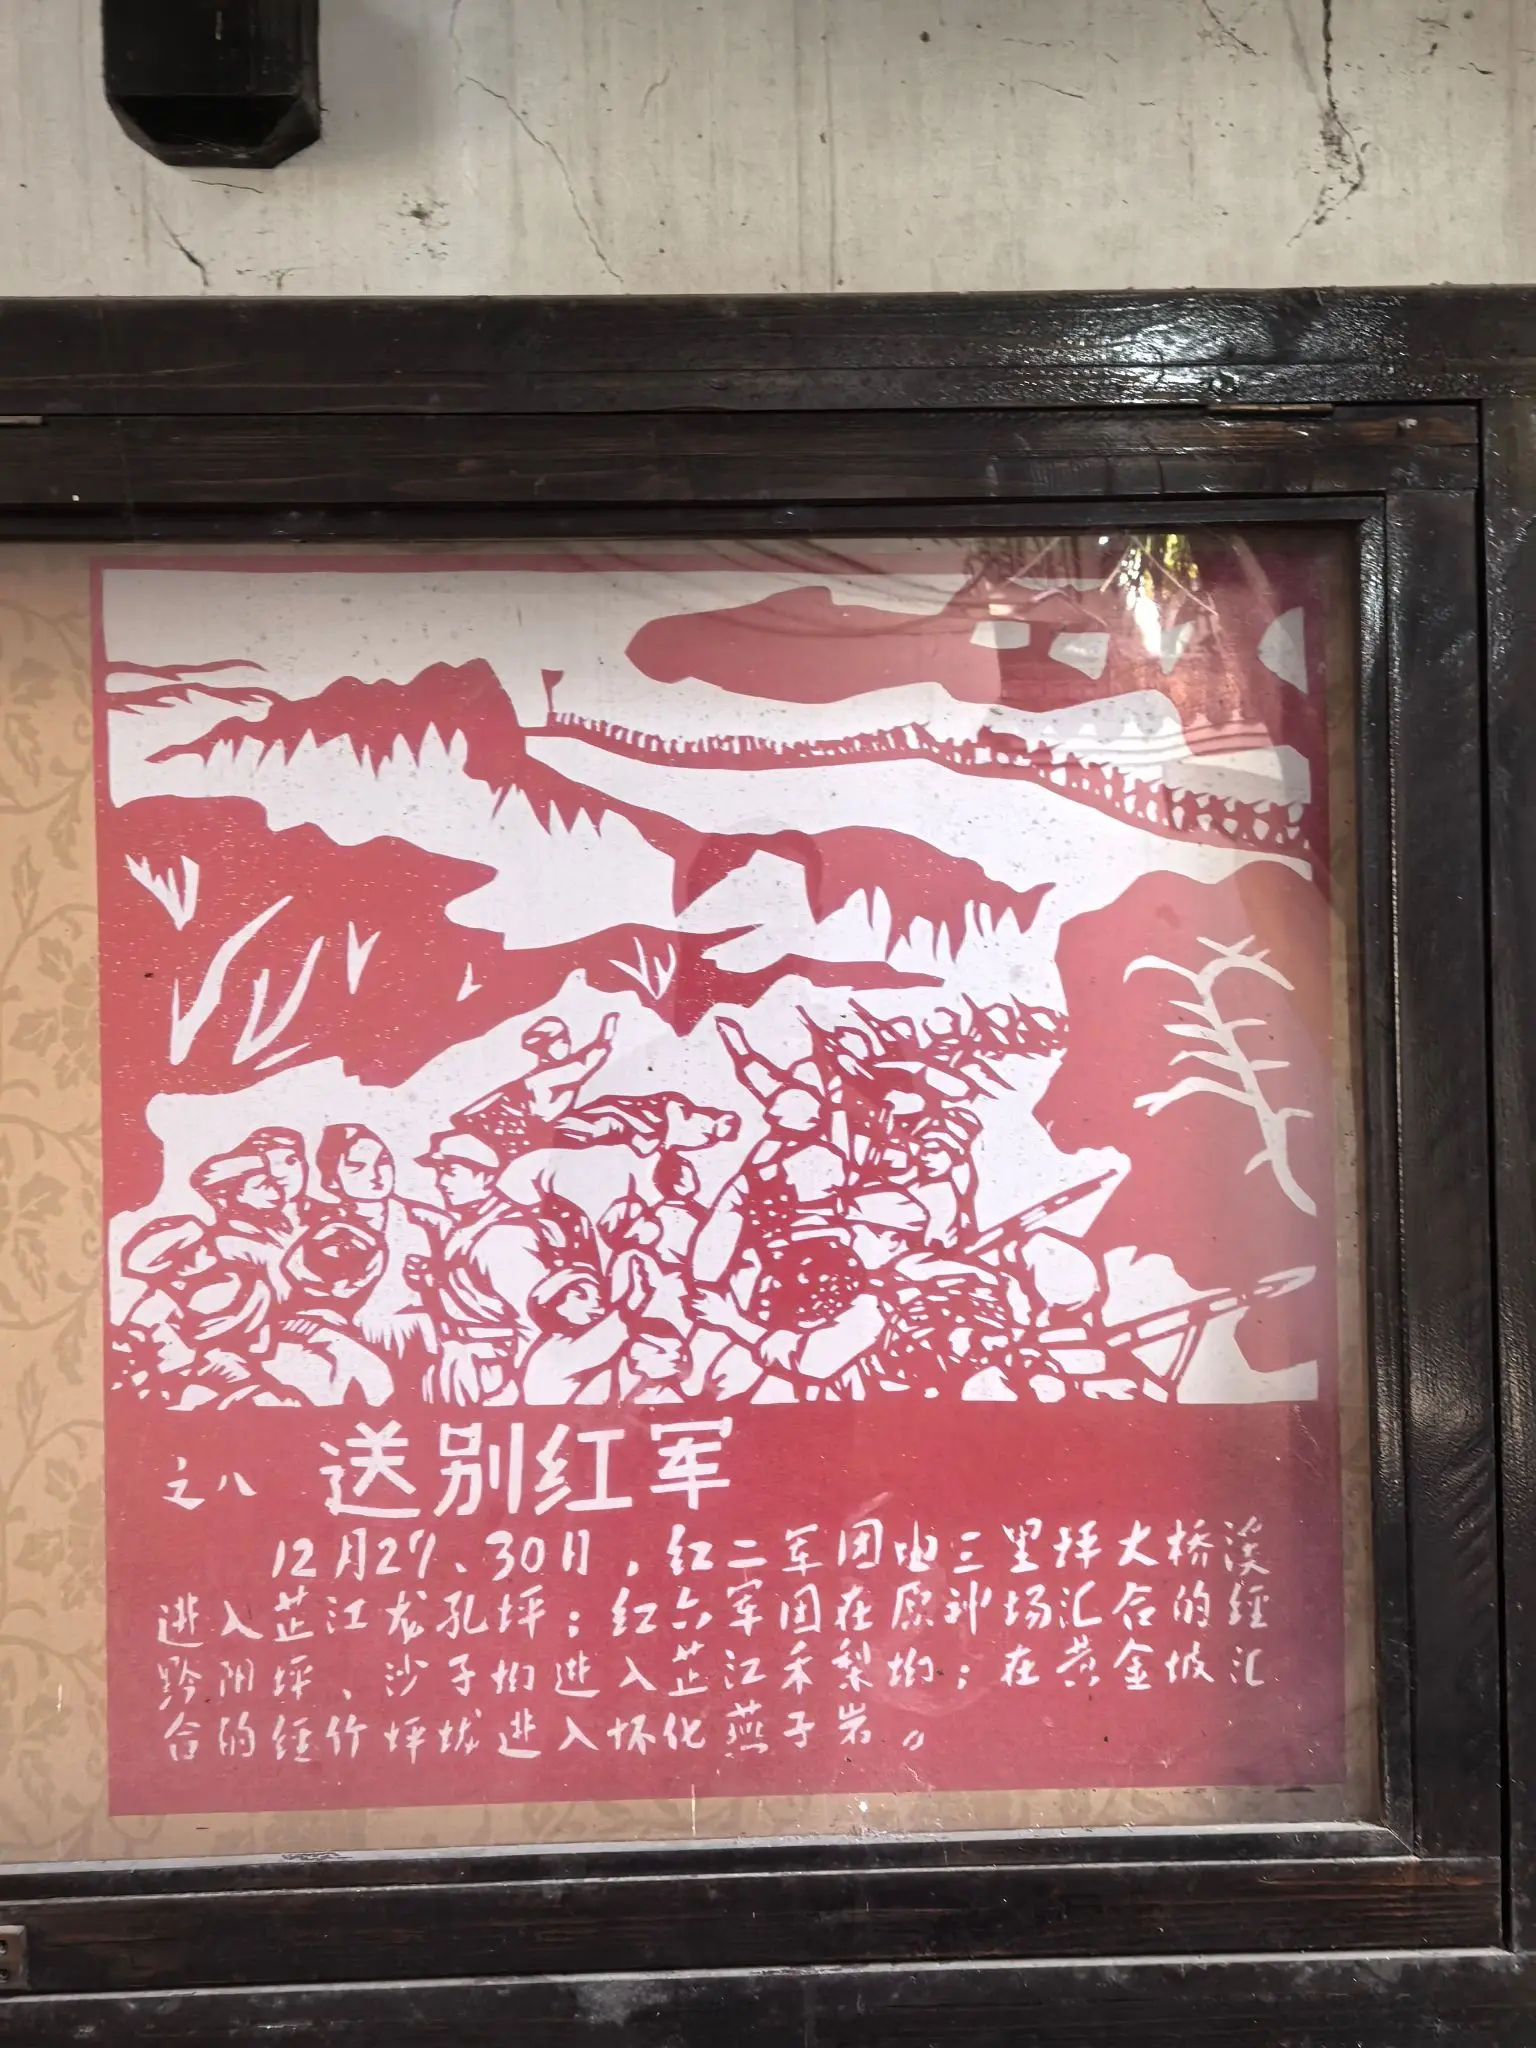 之八 送别红军
12月27、30日，红二军团由三里坪大桥溪
进入芷江龙孔坪；红六军团在原神场汇合的经
黔阴坪、沙子坳进入芷江禾梨坳；在黄金坡汇
合的经竹坪垅进入怀化燕子岩。